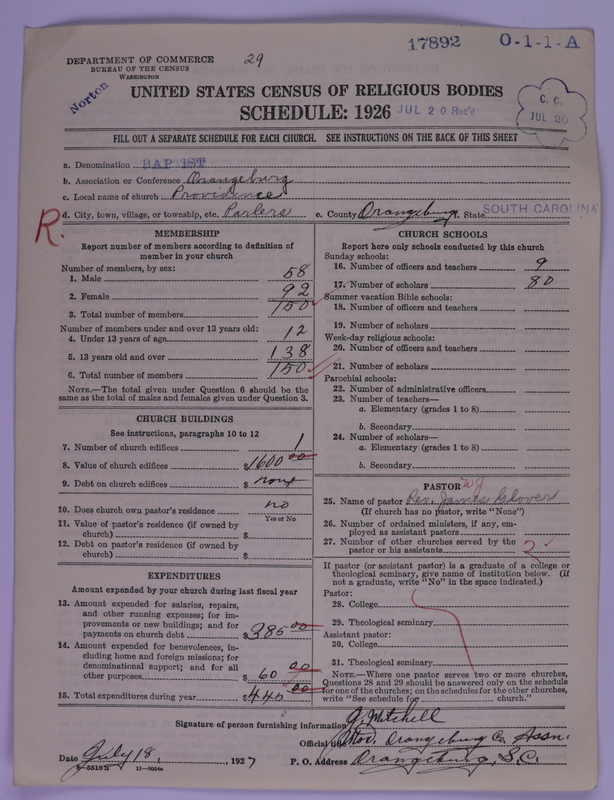 17892 0-1-1-A
DEPARTMENT OF COMMERCE 29
BUREAU OF THE CENSUS
WASHINGTON
Norton
UNITED STATES CENSUS OF RELIGIOUS BODIES
SCHEDULE: 1926 JUL 20 Rec'd
C. C.
JUL 20
FILL OUT A SEPARATE SCHEDULE FOR EACH CHURCH. SEE INSTRUCTIONS ON THE BACK OF THIS SHEET
a. Denomination BAPTIST
b. Association or Conference Orangeburg
c. Local name of church Providence
R. d. City, town, village, or township, etc. Parlers e. County Orangeburg f. State SOUTH CAROLINA
MEMBERSHIP
Report number of members according to definition of
member in your church
Number of members, by sex:
1. Male 58
2. Female 92
3. Total number of members 150
Number of members under and over 13 years old:
4. Under 13 years of age 12
5. 13 years old and over 138
6. Total number of members 150
NOTE.—The total given under Question 6 should be the
same as the total of males and females given under Question 3.
CHURCH BUILDINGS
See instructions, paragraphs 10 to 12
7. Number of church edifices 1
8. Value of church edifices $1600 00
9. Debt on church edifices $ none
10. Does church own pastor's residence no
Yes or No
11. Value of pastor's residence (if owned by
church) $
12. Debt on pastor's residence (if owned by
church) $
EXPENDITURES
Amount expended by your church during last fiscal year
13. Amount expended for salaries, repairs,
and other running expenses; for im-
provements or new buildings; and for
payments on church debt $385 00
14. Amount expended for benevolences, in-
cluding home and foreign missions; for
denominational support; and for all
other purposes $60 00
15. Total expenditures during year $445 00
CHURCH SCHOOLS
Report here only schools conducted by this church
Sunday schools:
16. Number of officers and teachers 9
17. Number of scholars 80
Summer vacation Bible schools:
18. Number of officers and teachers
19. Number of scholars
Week-day religious schools:
20. Number of officers and teachers
21. Number of scholars
Parochial schools:
22. Number of administrative officers
23. Number of teachers—
a. Elementary (grades 1 to 8)
b. Secondary
24. Number of scholars—
a. Elementary (grades 1 to 8)
b. Secondary
PASTOR
25. Name of pastor Rev. James Glover
(If church has no pastor, write "None")
26. Number of ordained ministers, if any, em-
ployed as assistant pastors
27. Number of other churches served by the
pastor or his assistants 2
If pastor (or assistant pastor) is a graduate of a college or
theological seminary, give name of institution below. (If
not a graduate, write "No" in the space indicated.)
Pastor:
28. College
29. Theological seminary
Assistant pastor:
30. College
31. Theological seminary
NOTE.—Where one pastor serves two or more churches,
Questions 28 and 29 should be answered only on the schedule
for one of the churches; on the schedules for the other churches,
write "See schedule for church."
Signature of person furnishing information G. Mitchell
Official title Mod. Orangeburg Co. Assn.
Date July 18, 1927 P. O. Address Orangeburg, S.C.
8-5518a 11—9034a